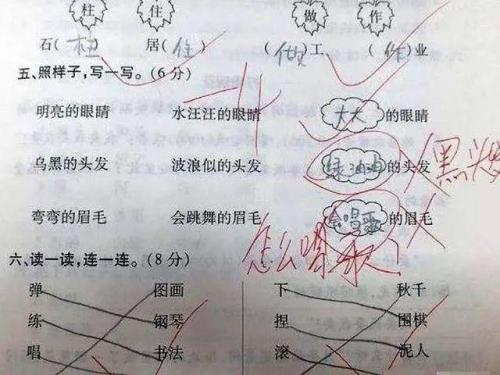 柱 住 做 作
石(柱) 居(住) (做)工 (作)业
五、照样子，写一写。(6分)
明亮的眼睛 水汪汪的眼睛 大大的眼睛
乌黑的头发 波浪似的头发 绿油油的头发
弯弯的眉毛 会跳舞的眉毛 会唱歌的眉毛
怎么唱
六、读一读，连一连。(8分)
弹 图画 下 秋千
练 钢琴 捏 围棋
唱 书法 滚 泥人